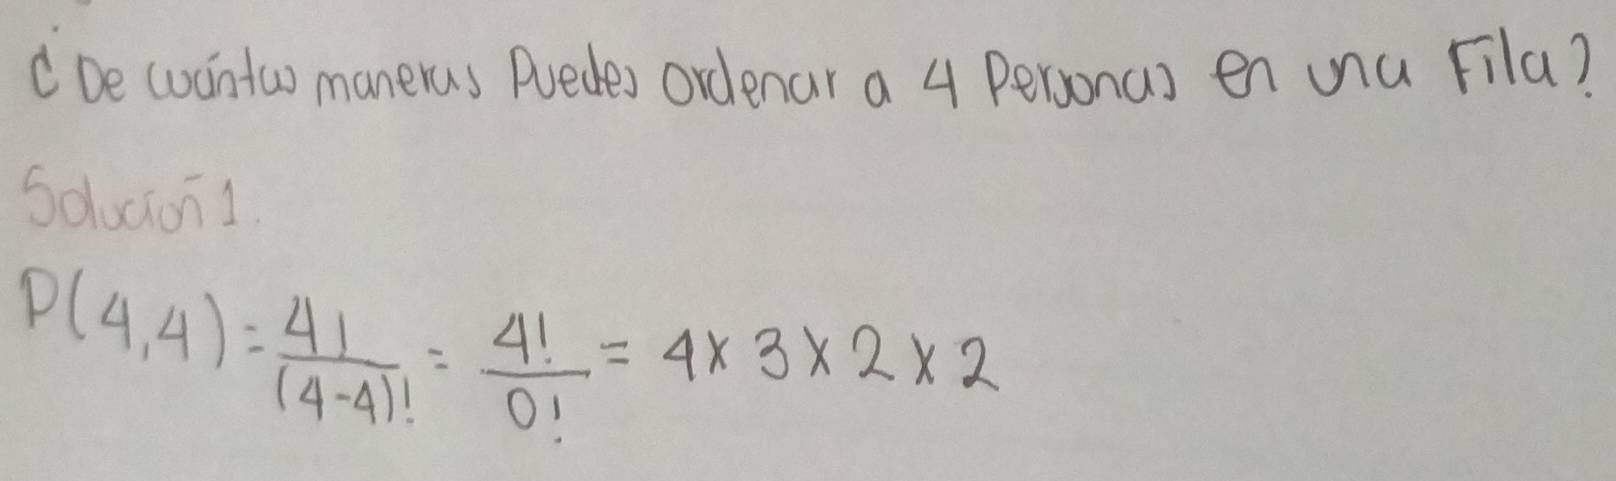 ¿De cuántas maneras Puedes ordenar a 4 Personas en una Fila?
Solución 1.
P(4,4) = 4! / (4-4)! = 4! / 0! = 4 x 3 x 2 x 2